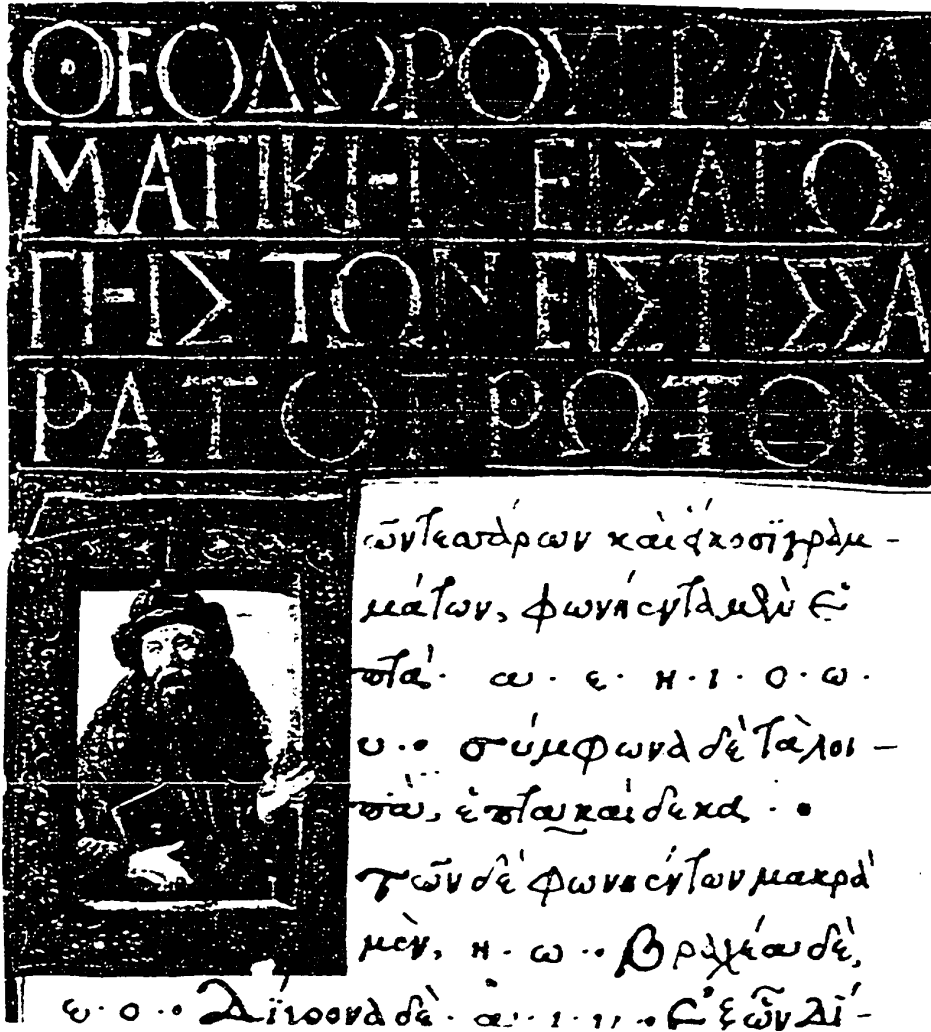 ΘΕΟΔΩΡΟΥ ΓΡΑΜ
ΜΑΤΙΚΗΣ ΕΙΣΑΓΩ
ΓΗΣ ΤΩΝ ΕΙΣ ΤΕΣΣΑ
ΡΑ ΤΟ ΠΡΩΤΟΝ
ῶν τεσσάρων καὶ εἴκοσι γραμ-
μάτων, φωνήεντα μὲν ἑ
πτά· α · ε · η · ι · ο · ω ·
υ ·· σύμφωνα δὲ τὰ λοι-
πὰ, ἑπτακαίδεκα ··
τῶν δὲ φωνηέντων μακρὰ
μὲν, η · ω ·· βραχέα δὲ,
ε · ο ·· Δίχρονα δὲ · α · ι · υ ·· ἐξ ὧν δί-